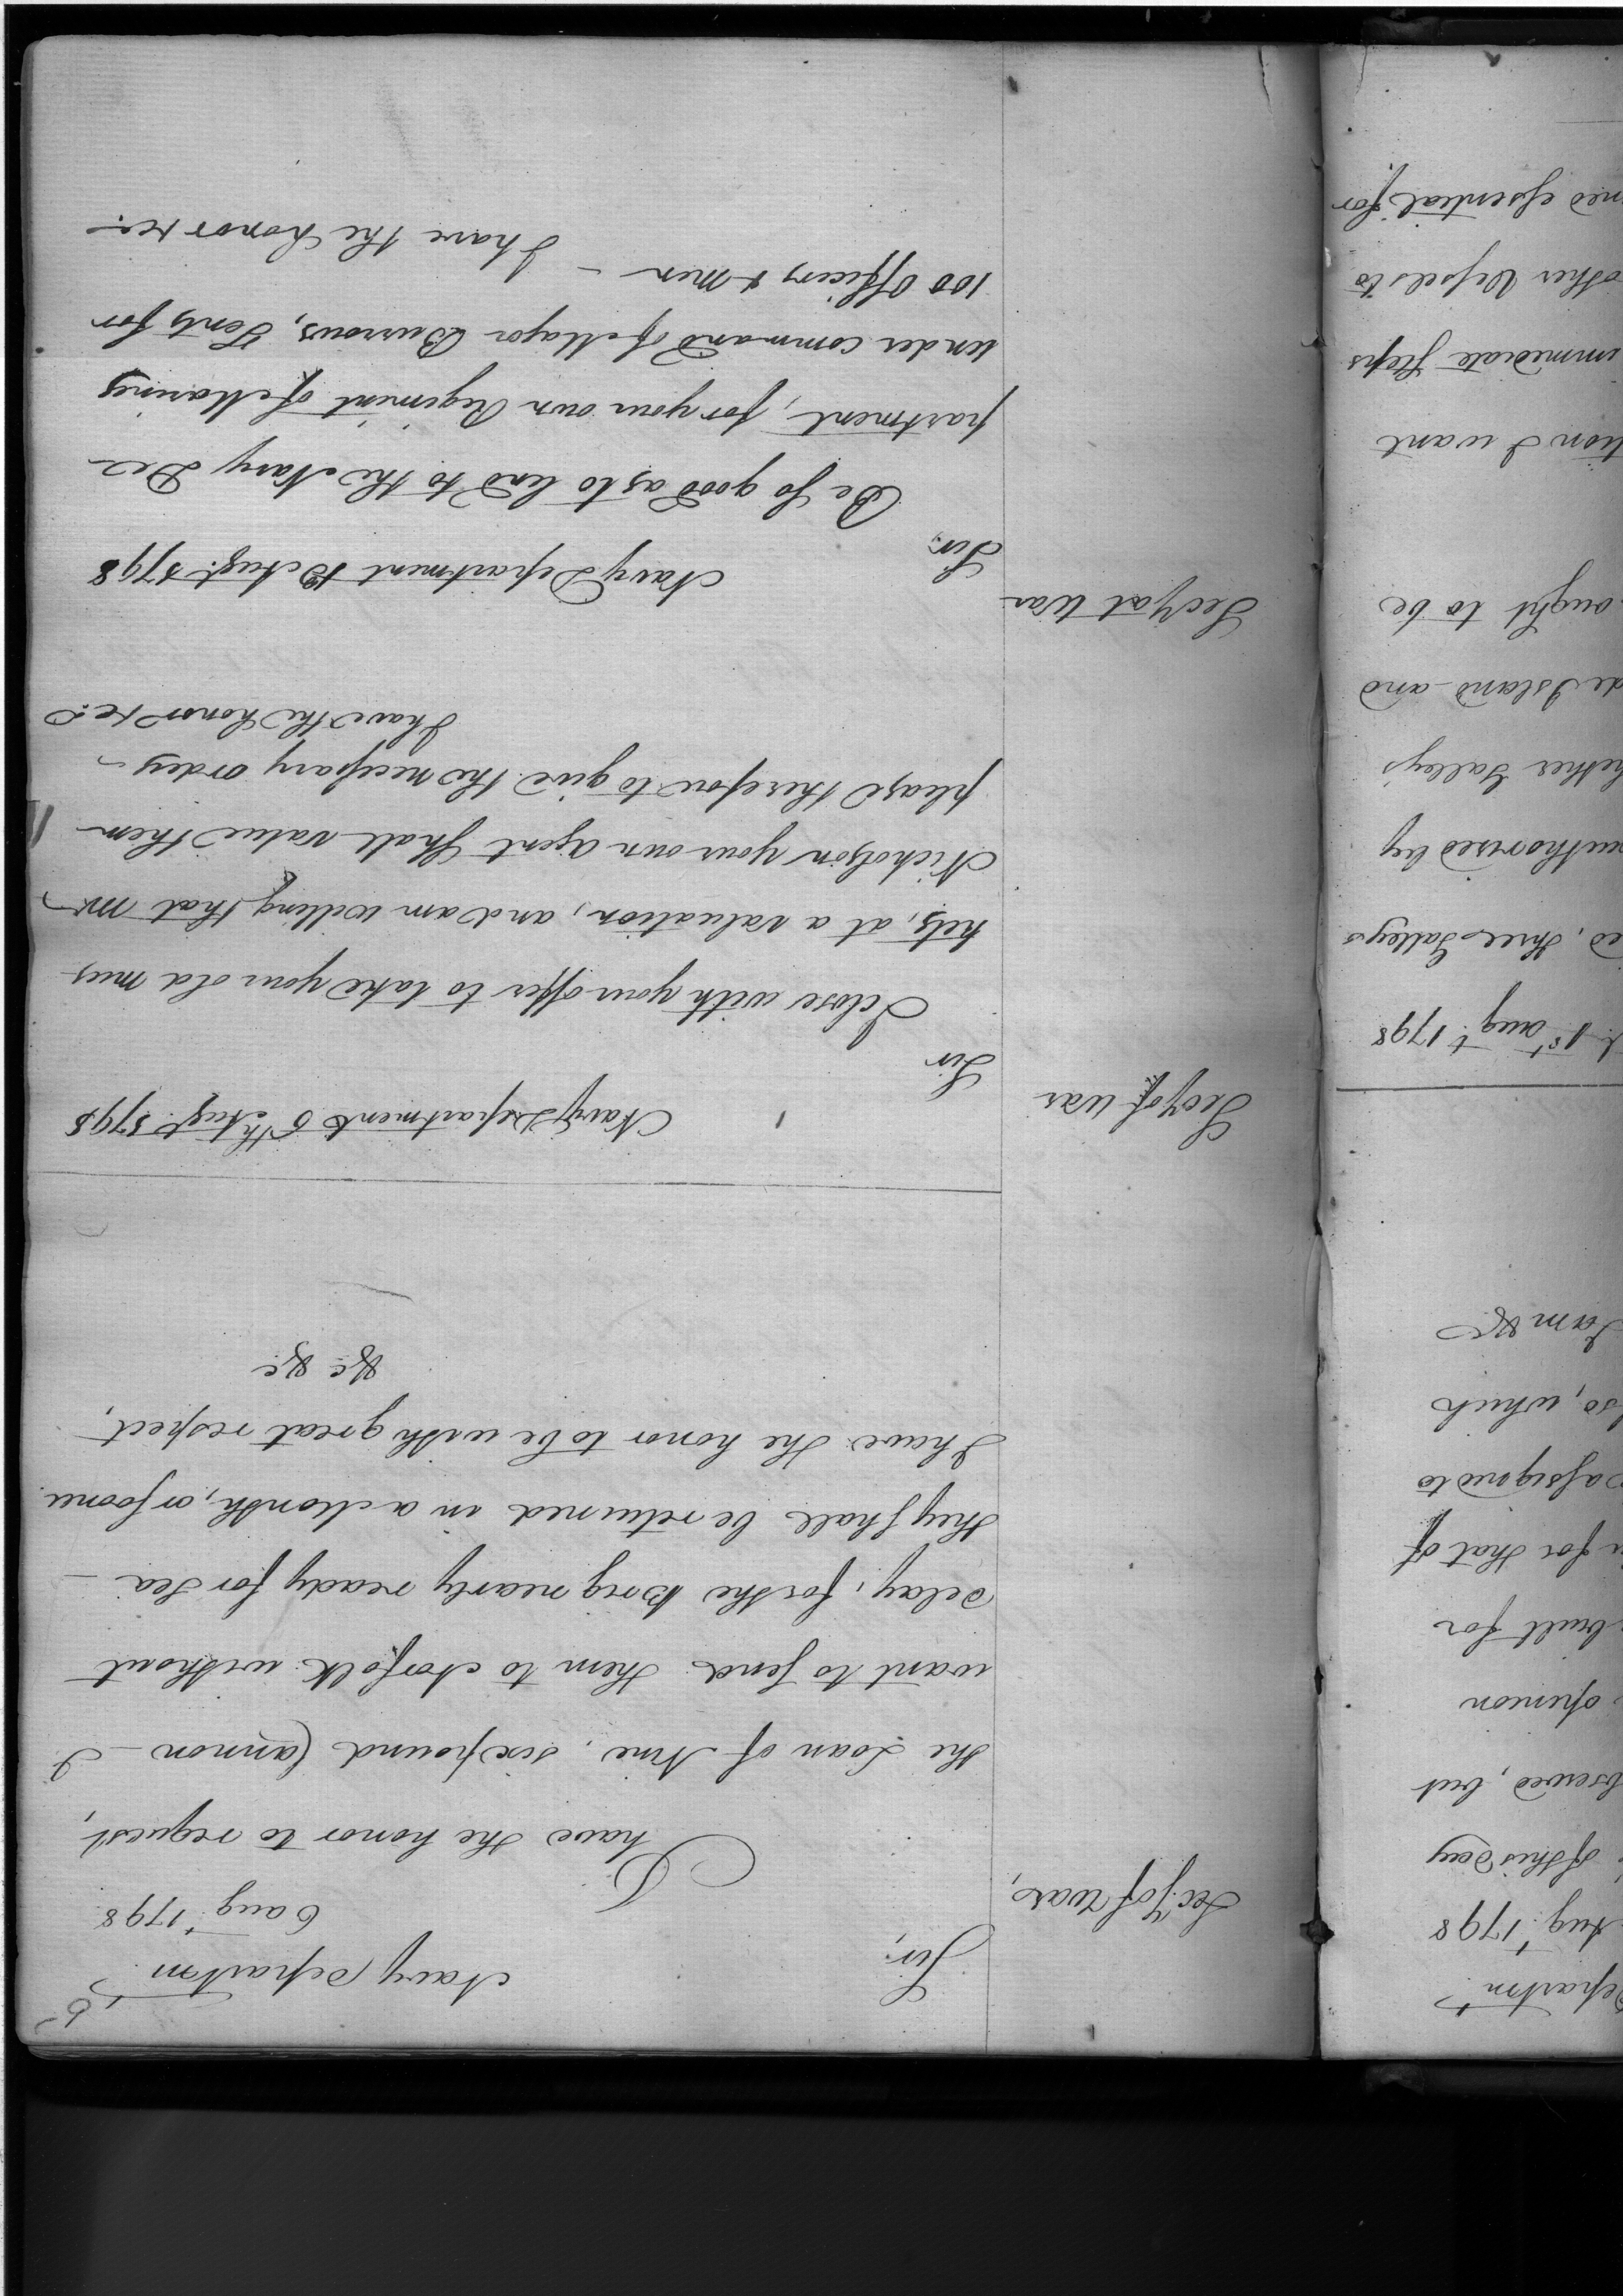 5
Navy Departm.t
6 aug.t 1798
Sec.y of War,
Sir,
I have the honor to request,
the Loan of Nine, six pound Cannon - I
want to send them to Norfolk without
delay, for the Brig nearly ready for Sea -
they shall be returned in a Month, or sooner
I have the honor to be with great respect,
&c &c
Navy Department 6th Augt 1798
Secy of War
Sir
I close with your offer to take your old mus
kets, at a valuation, and am willing that Mr
Nicholson your own agent shall value them
please therefore to give the necessary orders -
I have the honor &c.
Navy Department Augt. 1798
Secy at War
Sir,
Be so good as to lend to the Navy De
partment, for your own Regiment of Marines
under command of Major Burrows, Tents for
100 Officers & Men -
I have the honor &c.
Departm.t
Aug.t 1798
of this day
bserved, but
opinion
built for
for that of
assigned to
so, which
I am &c
1st aug.t 1798
ed, three Galleys
authorised by
hether Galleys
de Island and
ought to be
tion I want
immediate steps
other Vessels to
ned essential for